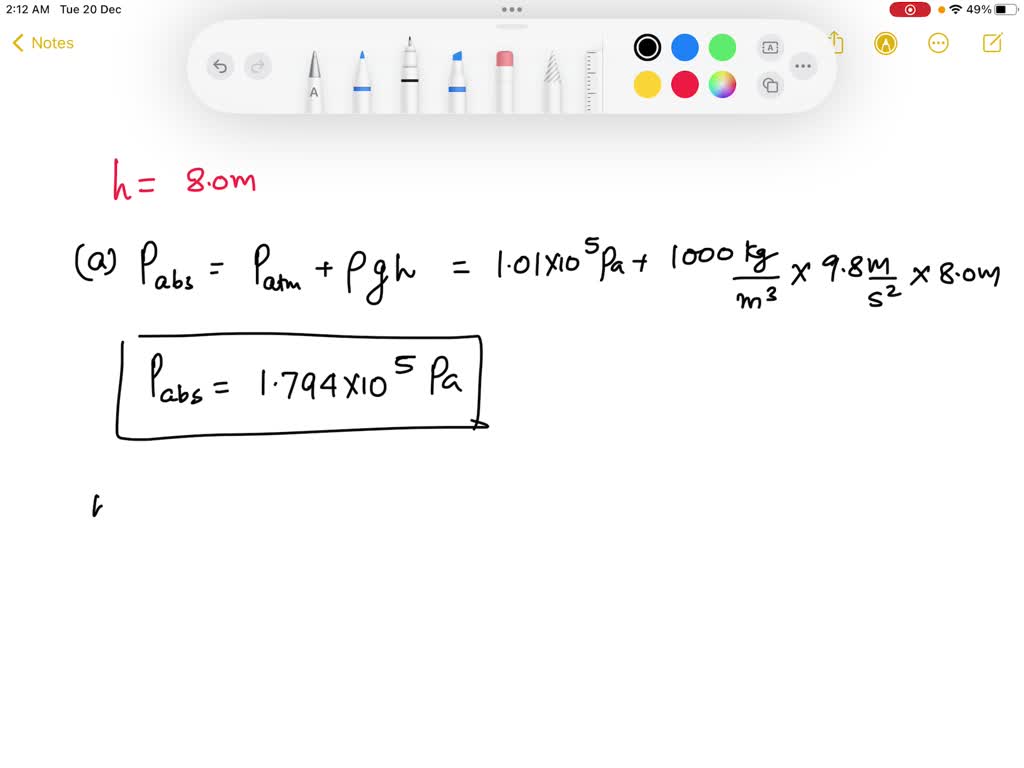 2:12 AM Tue 20 Dec
49%
Notes
A
A
h = 8.0m
(a) Pabs = Patm + ρgh = 1.01×10⁵ Pa + 1000 kg/m³ × 9.8 m/s² × 8.0m
Pabs = 1.794×10⁵ Pa